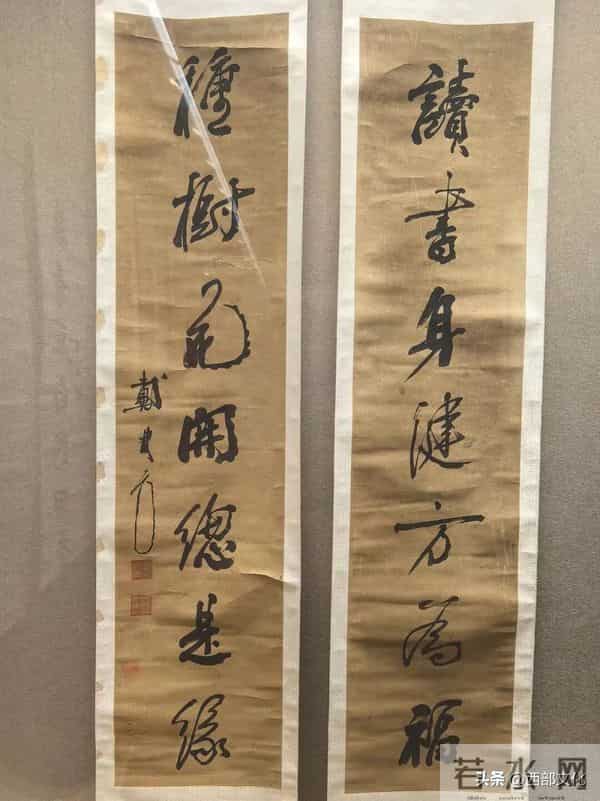 讀書身健方為福
種樹花開總是緣
戴
头条 @西部文化
若水网